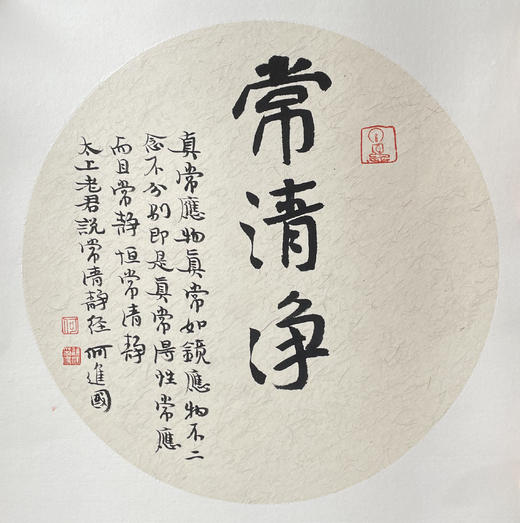 常清净
真常應物真常如鏡應物不二
念不分别即是真常得性常應
而且常静恒常清静
太上老君説常清静经 何進國